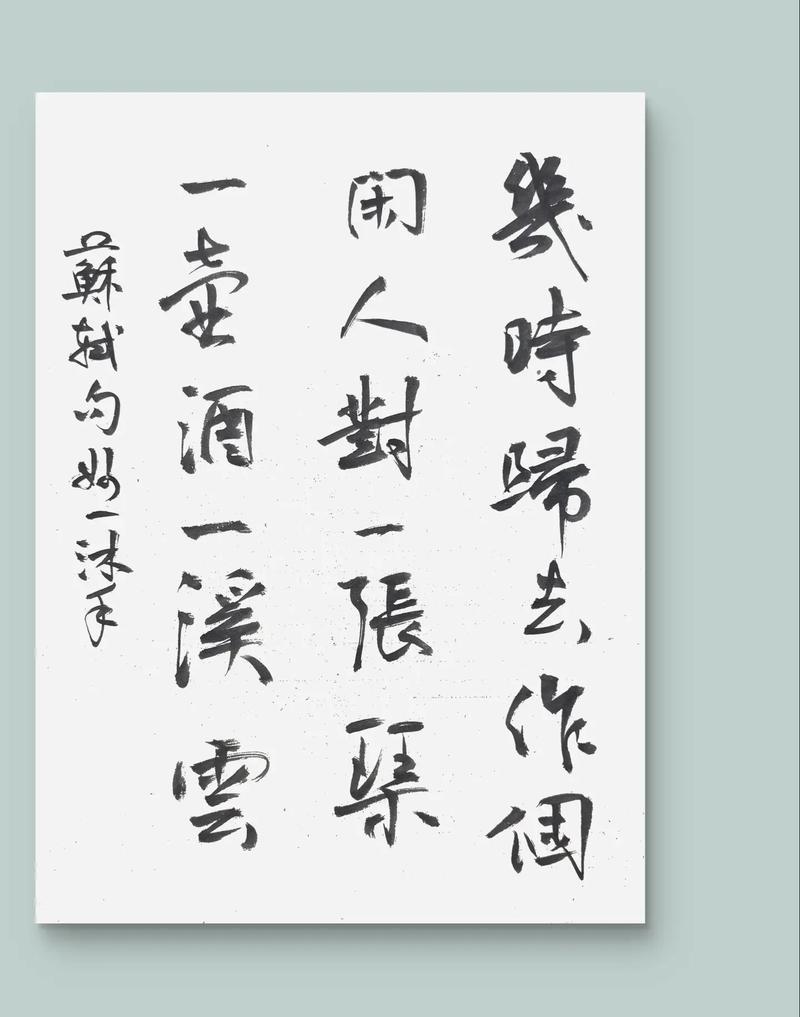 幾時歸去作個
閑人對一張琹
一壺酒一溪雲
蘇軾句妙一沐手